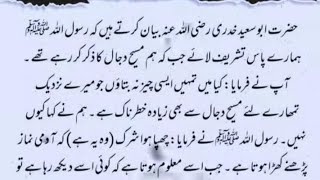 حضرت ابوسعید خدری رضی اللہ عنہ بیان کرتے ہیں کہ رسول اللہ ﷺ
ہمارے پاس تشریف لائے جب کہ ہم مسیح دجال کا ذکر کر رہے تھے۔
آپ نے فرمایا: کیا میں تمہیں ایسی چیز نہ بتاؤں جو میرے نزدیک
تمھارے لئے مسیح دجال سے بھی زیادہ خطرناک ہے۔ ہم نے کہا کیوں
نہیں۔ رسول اللہ ﷺ نے فرمایا: چھپا ہوا شرک (وہ یہ ہے) کہ آدمی نماز
پڑھنے کھڑا ہوتا ہے۔ جب اسے معلوم ہوتا ہے کہ کوئی اسے دیکھ رہا ہے تو